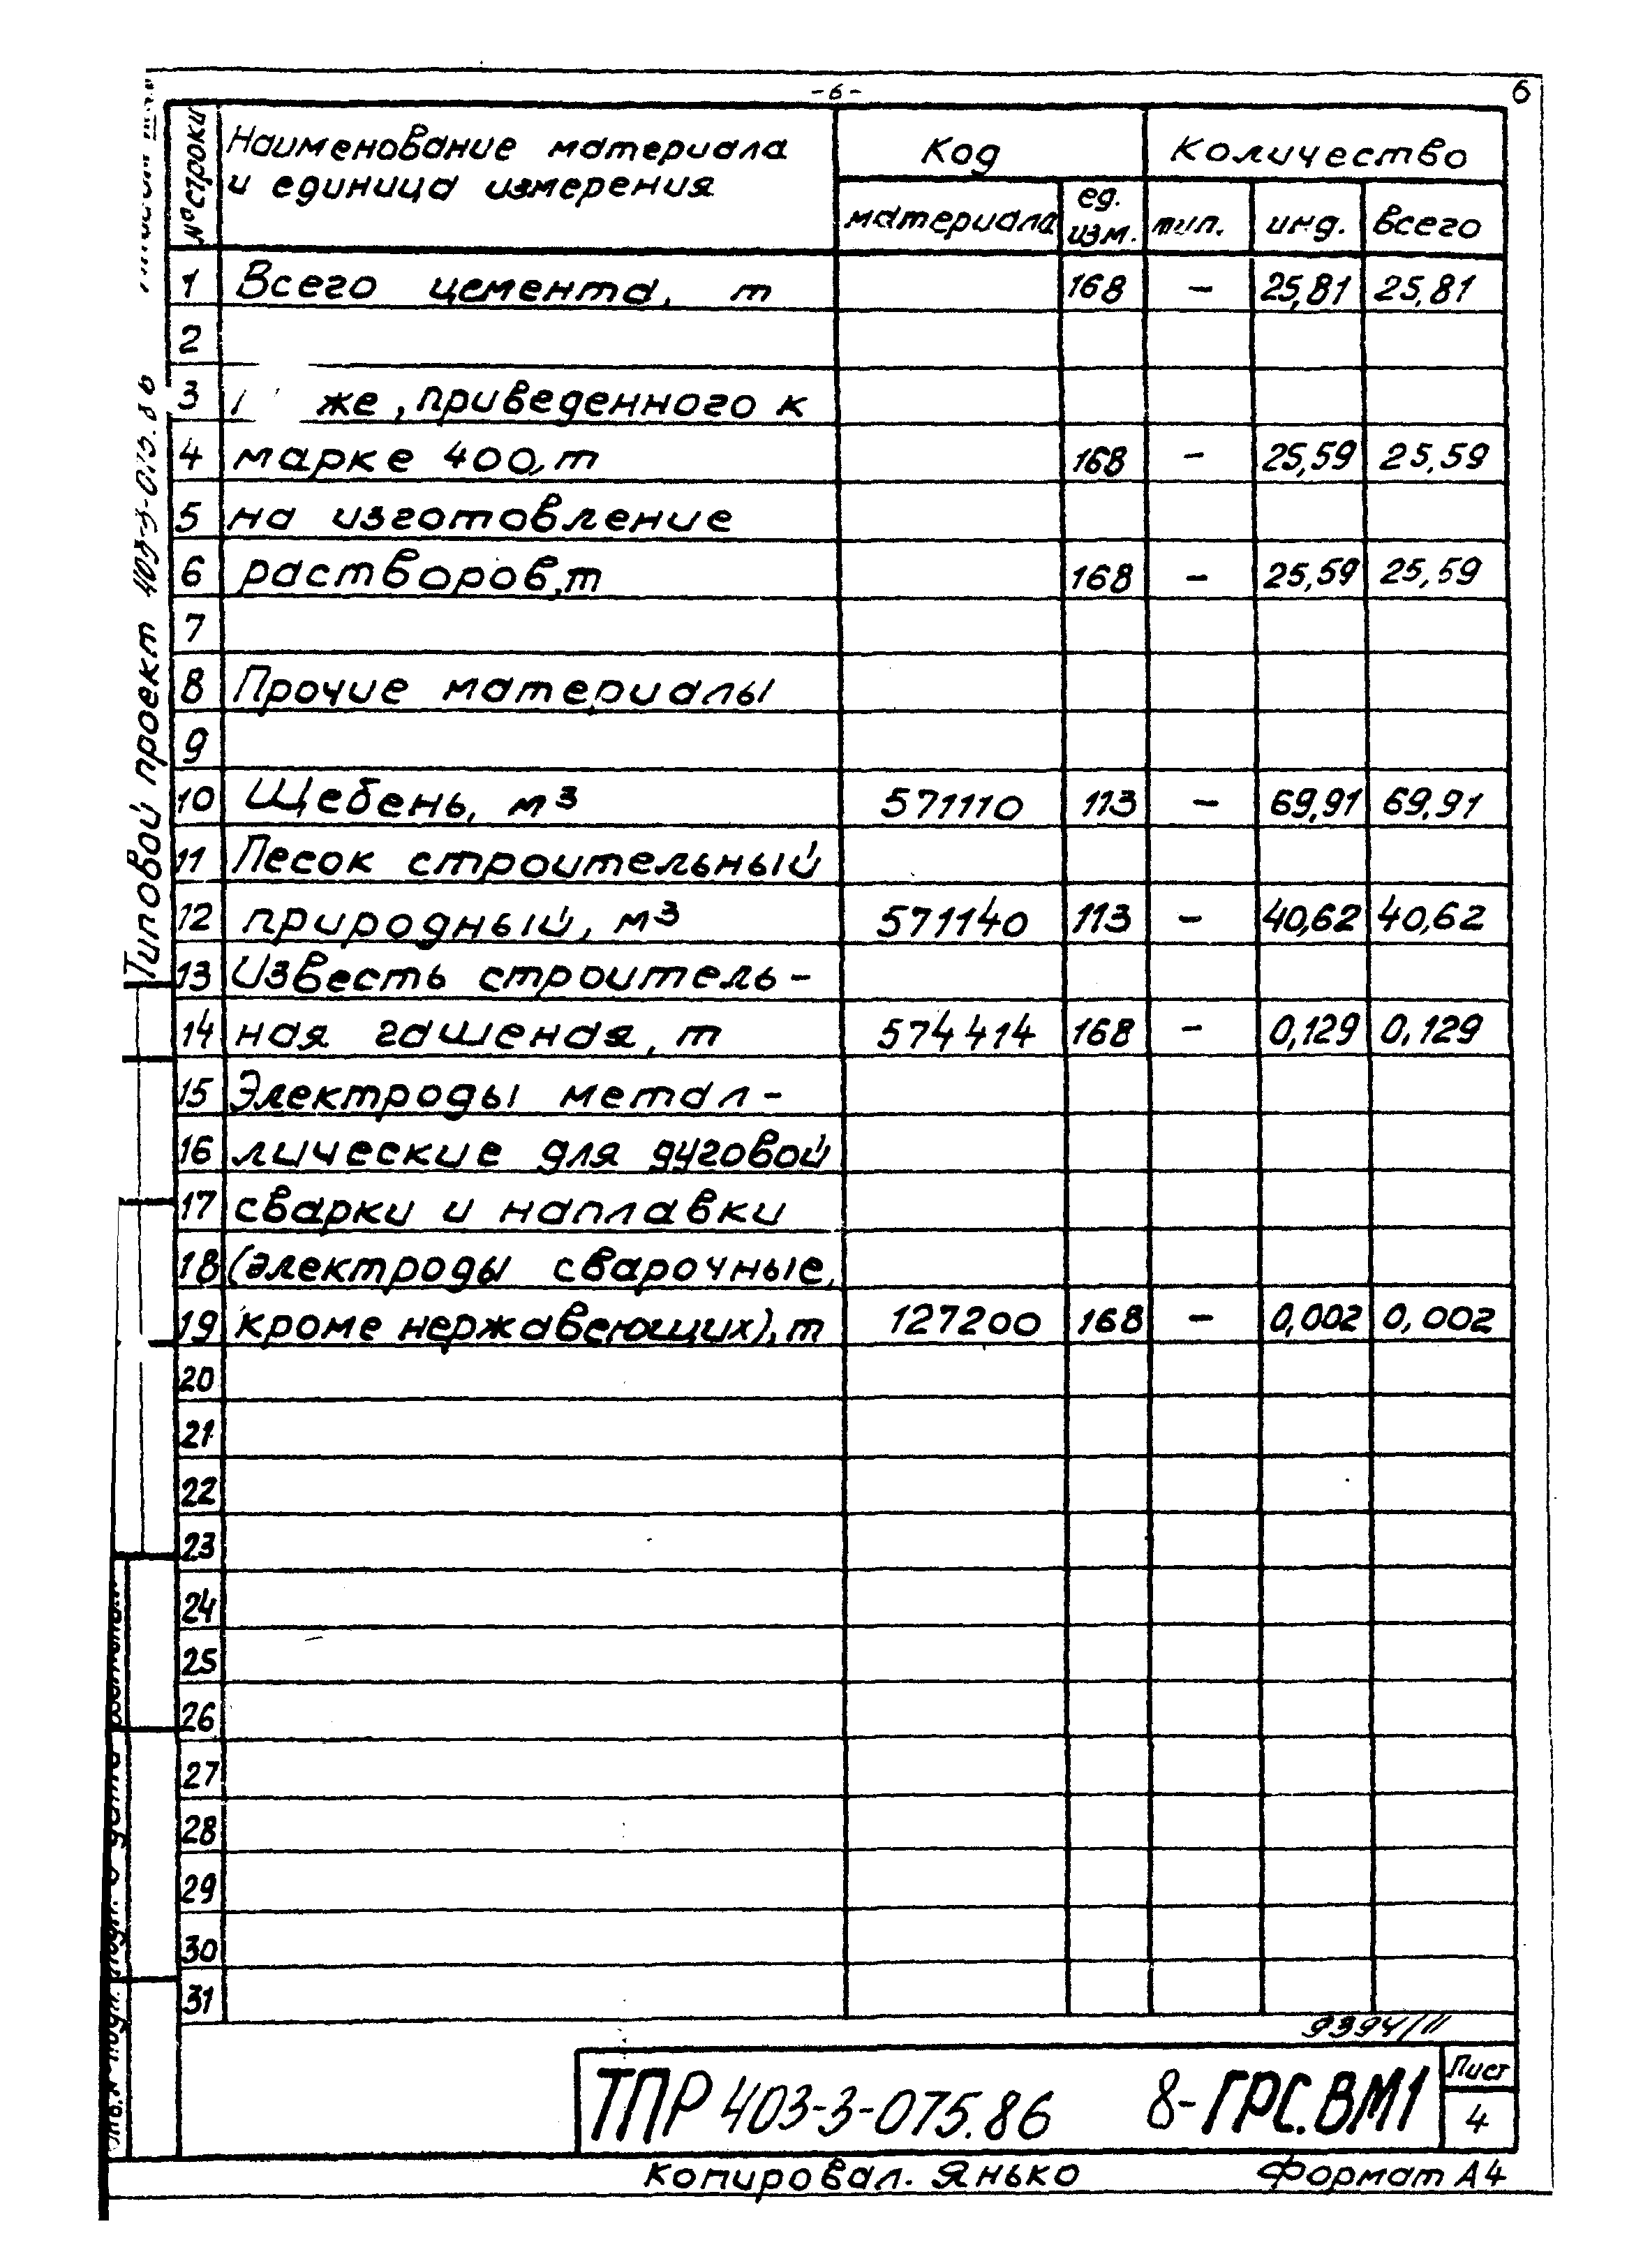 -6-
6
№ строки
Наименование материала
и единица измерения
Код
Количество
материала
ед.
изм.
тип.
инд.
всего
1 Всего цемента, т 168 - 25,81 25,81
2
3 же, приведенного к
4 марке 400, т 168 - 25,59 25,59
5 на изготовление
6 растворов, т 168 - 25,59 25,59
7
8 Прочие материалы
9
10 Щебень, м³ 571110 113 - 69,91 69,91
11 Песок строительный
12 природный, м³ 571140 113 - 40,62 40,62
13 Известь строитель-
14 ная гашеная, т 574414 168 - 0,129 0,129
15 Электроды метал-
16 лические для дуговой
17 сварки и наплавки
18 (электроды сварочные,
19 кроме нержавеющих), т 127200 168 - 0,002 0,002
20
21
22
23
24
25
26
27
28
29
30
31
Типовой проект 403-3-075.86
Подп. и дата
9394/II
ТПР 403-3-075.86 8-ГРС.ВМ1
Лист
4
Копировал. Янько
Формат А4